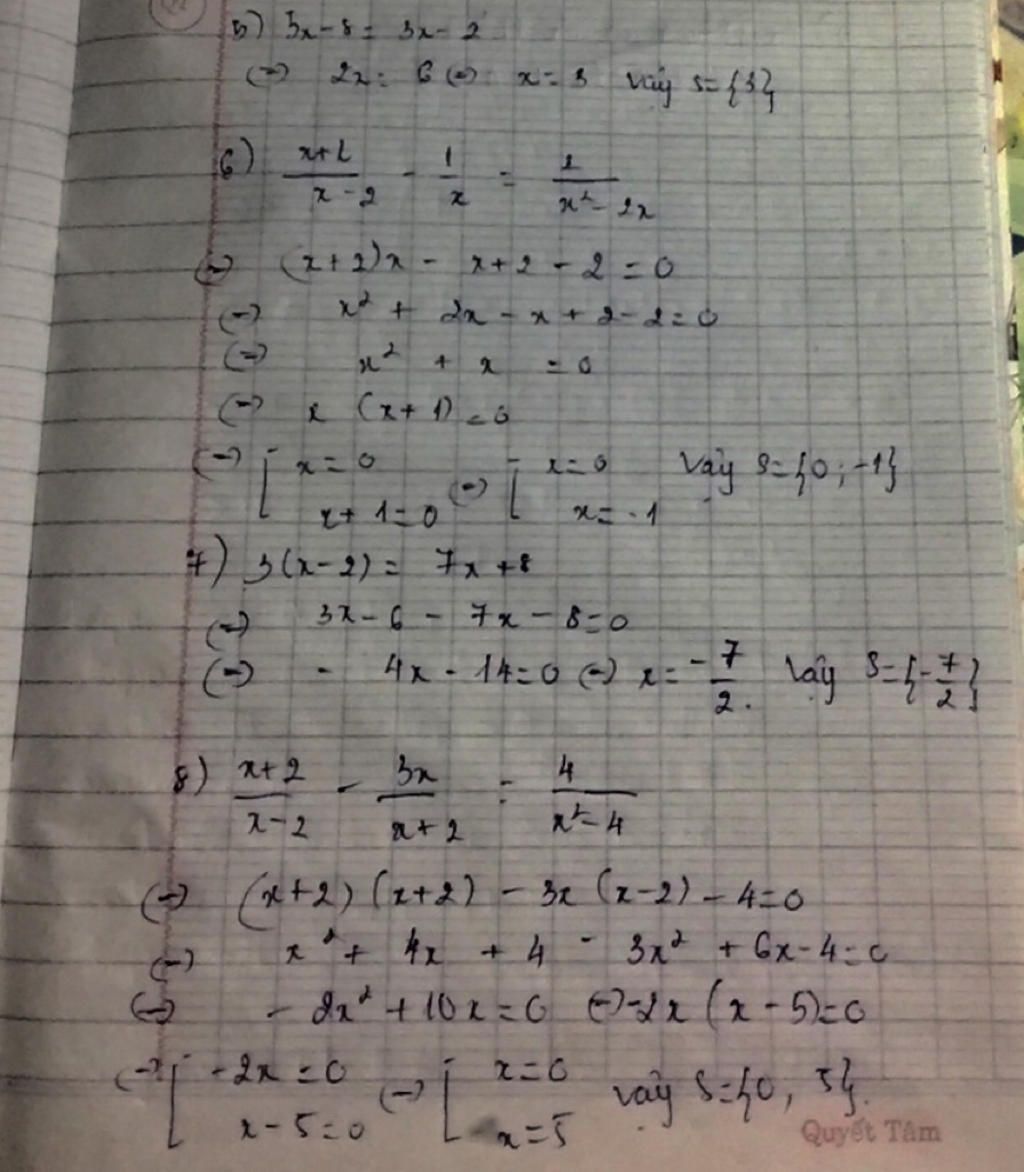 5) 5x - 8 = 3x - 2
(=) 2x = 6 (=) x = 3 Vậy S = {3}
6) x+2/x-2 - 1/x = 2/x²-2x
(=) (x+2)x - x + 2 - 2 = 0
(=) x² + 2x - x + 2 - 2 = 0
(=) x² + x = 0
(=) x (x + 1) = 0
(=) [ x = 0 (=) [ x = 0 Vậy S = {0 ; -1}
x + 1 = 0 x = -1
7) 3(x-2) = 7x + 8
(=) 3x - 6 - 7x - 8 = 0
(=) - 4x - 14 = 0 (=) x = -7/2. Vậy S = {-7/2}
8) x+2/x-2 - 3x/x+2 = 4/x²-4
(=) (x+2)(x+2) - 3x(x-2) - 4 = 0
(=) x² + 4x + 4 - 3x² + 6x - 4 = 0
(=) - 2x² + 10x = 0 (=) -2x (x - 5) = 0
(=) [ -2x = 0 (=) [ x = 0 Vậy S = {0, 5}.
x - 5 = 0 x = 5
Quyết Tâm